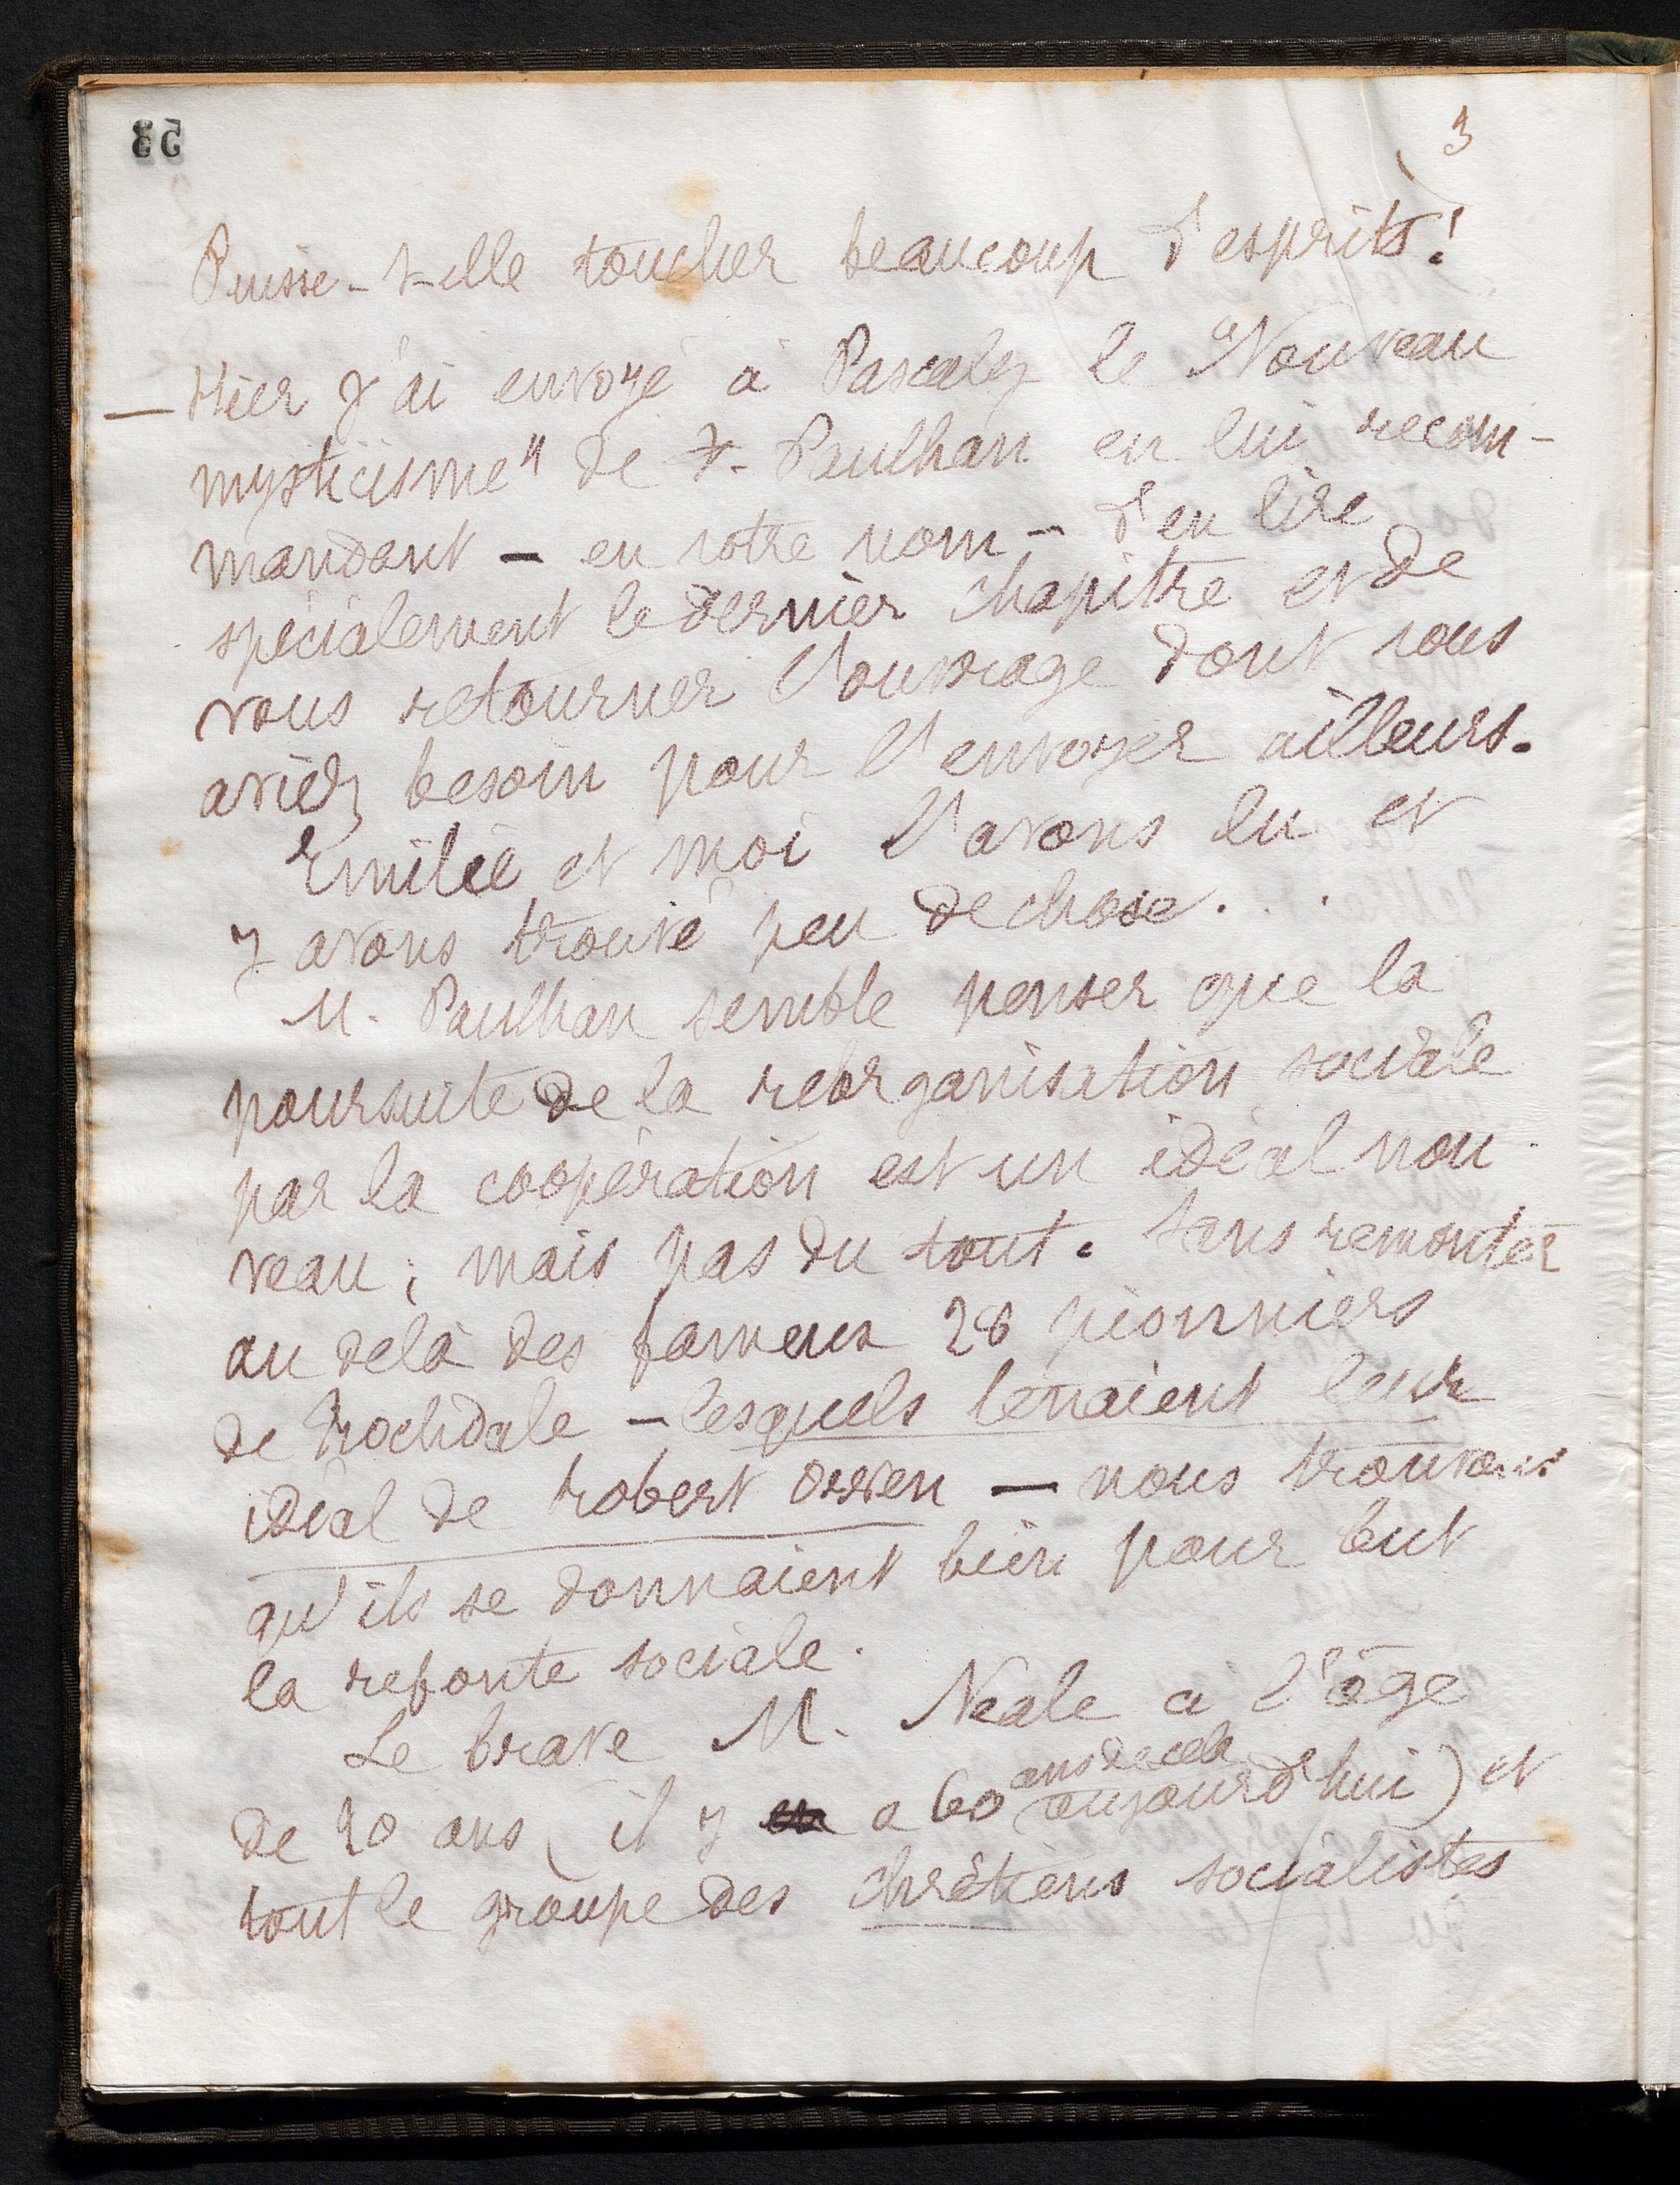 58
3
Puisse-t-elle toucher beaucoup d'esprits!
— Hier j'ai envoyé à Pascaly le "Nouveau
mysticisme" de F. Paulhan en lui recom-
mandant — en votre nom — d'en lire
spécialement le dernier chapitre et de
vous retourner l'ouvrage dont vous
aviez besoin pour l'envoyer ailleurs.
Emilie et moi l'avons lu et
y avons trouvé peu de chose...
M. Paulhan semble penser que la
poursuite de la réorganisation sociale
par la coopération est un idéal nou-
veau; mais pas du tout. Sans remonter
au delà des fameux 28 pionniers
de Rochdale — lesquels tenaient leur
idéal de Robert Owen — nous trouvons
qu'ils se donnaient bien pour but
la refonte sociale.
Le brave M. Neale a l'âge
ans de cela
de 20 ans (il y a 60 aujourd'hui) et
tout le groupe des chrétiens socialistes